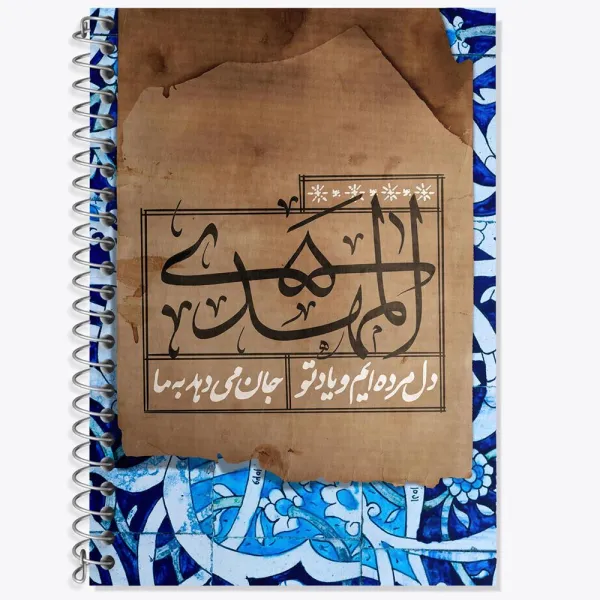 المهدی
دل مرده ایم و یاد تو جان می دهد به ما